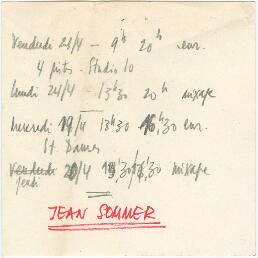 Vendredi 21/4 - 9h 20h enr.
4 pistes - Studio 10
Lundi 24/4 - 13h30 20h mixage
Mercredi 19/4 13h30 16h,30 enr.
St. Dames
Jeudi 20/4 13h30 / mixage
JEAN SOMMER